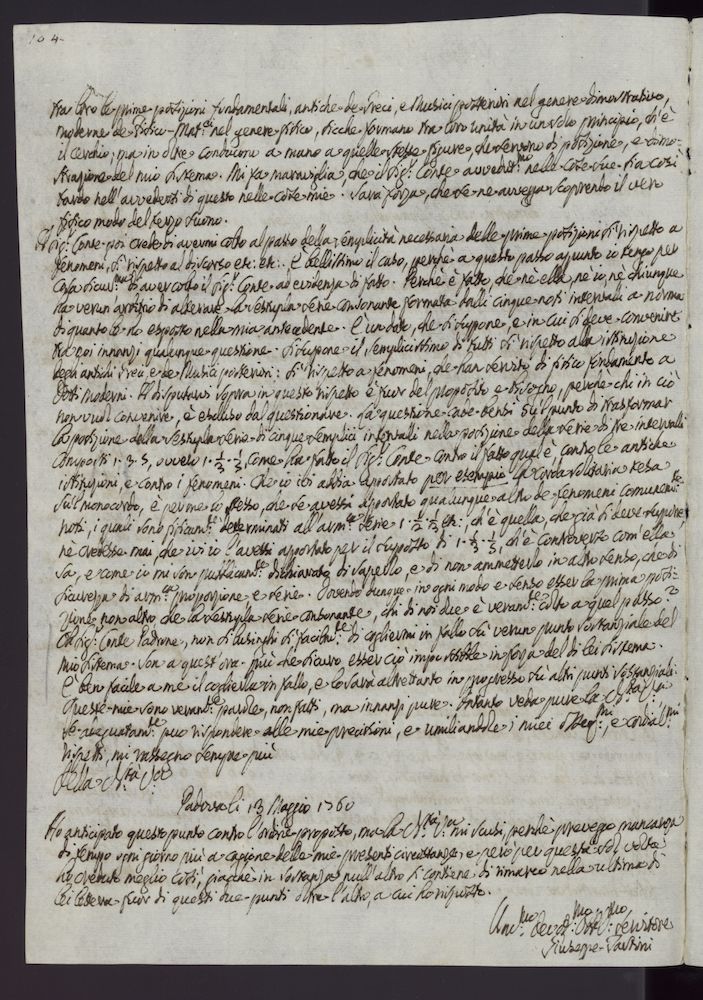 104
tra loro le prime posizioni fundamentali, antiche de Greci, e Musici posteriori nel genere dimostrativo,
moderne de Fisico-Mat.ci nel genere fisico, sicche formano tra loro unità in un solo principio, ch'è
il cerchio; ma in oltre conducono a mano a quelle stesse figure, che servono di posizione, e dimo-
strazione del mio sistema. Mi fa maraviglia, che il Sig.r Conte avvedut.mo nelle cose sue sia così
tardo nell'avvedersi di questo nelle cose mie. Sarà forza, che se ne avvegga scoprendo il vero
fisico modo del terzo suono.
Il Sig.r Conte poi crede di avermi colto al passo della semplicità necessaria delle prime posizioni di rispetto a
fenomeni, di rispetto al discorso etc: etc: È bellissimo il caso, perchè a questo passo appunto io tengo per
cosa sicuris.ma di aver colto il Sig.r Conte ad evidenza di fatto. Perchè è fatto, che nè ella, nè io, nè chiunque
ha verun arbitrio di alterare la sestupla serie consonante formata dalli cinque noti intervalli a norma
di quanto le ho esposto nella mia antecedente. È un dato, che si suppone, e in cui si deve convenire
tra noi innanzi qualunque questione. Si suppone il semplicissimo di tutti di rispetto alla istituzione
degli antichi Greci, e de Musici posteriori: di rispetto a fenomeni, che han servito di fisico fondamento a
dotti moderni. Il disputar sopra in questo rispetto è fuor del proposito e bisogno, perchè chi in ciò
non vuol convenire, è escluso dal questionare. La questione cade bensì sul punto di trasformar
la posizione della sestupla serie di cinque semplici intervalli nella posizione della serie di tre intervalli
composti 1. 3. 5, ovvero 1. 1/3. 1/5, come ha fatto il Sig.r Conte contro il fatto qui è, contro le antiche
istituzioni, e contro i fenomeni. Che io ibi abbia apportato per esempio la corda sonora tesa
sul monocordo, è per me lo stesso, che se avessi apportato qualunque altro de fenomeni comunem.te
noti, i quali sono fisicam.te determinati all'arm.ca serie 1. 1/2. 1/3 etc:, ch'è quella, che già si deve supporre,
nè credesse mai, che ivi io l'avessi apportato per il supposto di 1. 1/3. 1/5, ch'è controverso com'ella
sa, e come io mi son più sicuram.te dichiarato di saperlo, e di non ammetterlo in altro senso, che di
sicurezza di arm.ca proporzione e serie. Dovendo dunque in ogni modo e senso esser la prima posi-
zione non altro che la sestupla serie consonante, chi di noi due è veram.te colto a quel passo?
Il Sig.r Conte Padrone, non si lusinghi sì facilm.te di cogliermi in fallo sù verun punto sostanziale del
mio sistema. Son a quest'ora più che sicuro, esser ciò impossibile in forza del di lei sistema.
È ben facile a me il coglierla in fallo, e lo sarà altrettanto in progresso sù altri punti sostanziali.
Queste mie sono veram.te parole, non fatti, ma innanzi pure. Intanto veda pure la S.ria V.ra
se adeguatam.te può rispondere alle mie precisioni, e umiliandole i miei osseq.mi, e cordial.mi
rispetti, mi rassegno sempre più
Della S.ria V.ra
Padova li 13 Maggio 1760
Ho anticipato questo punto contro l'ordine proposto, ma la S.ria V.ra mi scusi, perchè preveggo mancanza
di tempo ogni giorno più a cagione delle mie presenti circostanze, e però per questa sol volta
ho creduto meglio così, giacchè in sostanza null'altro si contiene di rimarco nella ultima di
lei lettera fuor di questi due punti oltre l'altro, a cui ho risposto.
Um.mo Dev.mo Obb.mo Servitore
Giuseppe Tartini